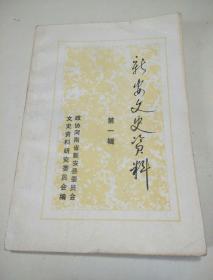 新安文史资料
第一辑
政协河南省新安县委员会
文史资料研究委员会编